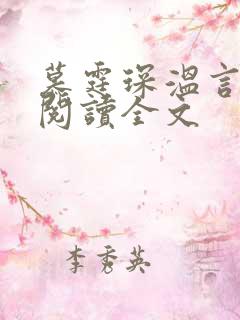 慕霆琛溫言
閱讀全文
李秀英